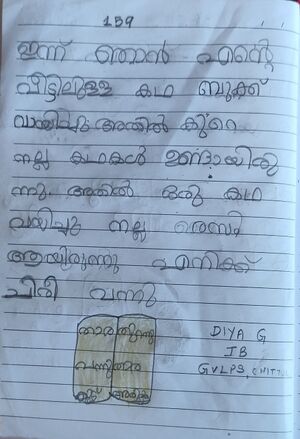 139
ഇന്ന് ഞാൻ എന്റെ
വീട്ടിലുള്ള കഥ ബുക്ക്
വായിച്ചു അതിൽ കുറെ
നല്ല കഥകൾ ഉണ്ടായിരു
ന്നു. അതിൽ ഒരു കഥ
വയിച്ചു നല്ല രസം
ആയിരുന്നു എനിക്ക്
ചിരി വന്നു
DIYA G
IB
GVLPS, CHITT